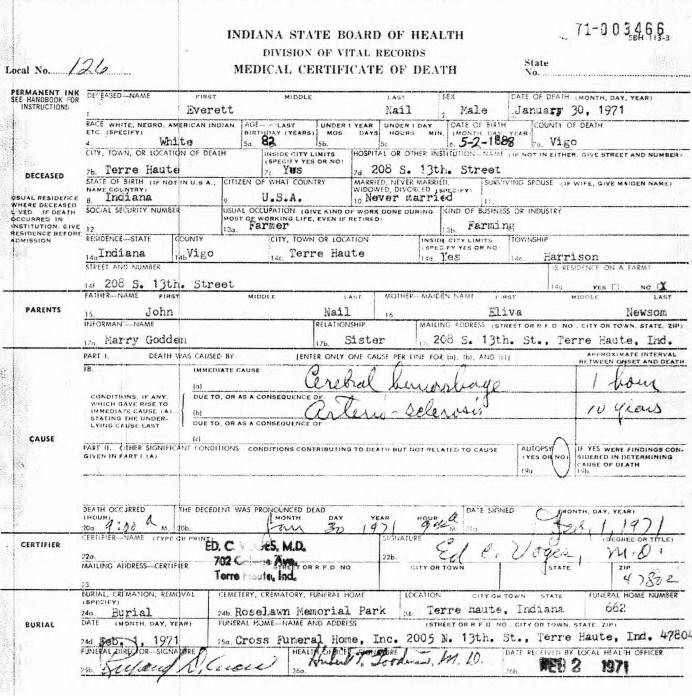 INDIANA STATE BOARD OF HEALTH
DIVISION OF VITAL RECORDS
MEDICAL CERTIFICATE OF DEATH
71-003466
SBH 113-3
Local No. 126
State No.
PERMANENT INK
SEE HANDBOOK FOR
INSTRUCTIONS
DECEASED—NAME FIRST MIDDLE LAST SEX DATE OF DEATH (MONTH, DAY, YEAR)
1. Everett Nail Male January 30, 1971
RACE WHITE, NEGRO, AMERICAN INDIAN, ETC. (SPECIFY) AGE—LAST BIRTHDAY (YEARS) UNDER 1 YEAR MOS. DAYS UNDER 1 DAY HOURS MIN. DATE OF BIRTH (MONTH, DAY, YEAR) COUNTY OF DEATH
4. White 5a. 82 5b. 5c. 6. 5-2-1888 7a. Vigo
CITY, TOWN, OR LOCATION OF DEATH INSIDE CITY LIMITS (SPECIFY YES OR NO) HOSPITAL OR OTHER INSTITUTION—NAME (IF NOT IN EITHER, GIVE STREET AND NUMBER)
7b. Terre Haute 7c. Yes 7d. 208 S. 13th. Street
DECEASED
USUAL RESIDENCE WHERE DECEASED LIVED. IF DEATH OCCURRED IN INSTITUTION, GIVE RESIDENCE BEFORE ADMISSION
STATE OF BIRTH (IF NOT IN U.S.A., NAME COUNTRY) CITIZEN OF WHAT COUNTRY MARRIED, NEVER MARRIED, WIDOWED, DIVORCED (SPECIFY) SURVIVING SPOUSE (IF WIFE, GIVE MAIDEN NAME)
8. Indiana 9. U.S.A. 10. Never married 11.
SOCIAL SECURITY NUMBER USUAL OCCUPATION (GIVE KIND OF WORK DONE DURING MOST OF WORKING LIFE, EVEN IF RETIRED) KIND OF BUSINESS OR INDUSTRY
12. 13a. Farmer 13b. Farming
RESIDENCE—STATE COUNTY CITY, TOWN OR LOCATION INSIDE CITY LIMITS (SPECIFY YES OR NO) TOWNSHIP
14a Indiana 14b Vigo 14c. Terre Haute 14d. Yes 14e. Harrison
STREET AND NUMBER IS RESIDENCE ON A FARM?
14f. 208 S. 13th. Street 14g YES NO X
PARENTS
FATHER—NAME FIRST MIDDLE LAST MOTHER—MAIDEN NAME FIRST MIDDLE LAST
15. John Nail 16. Eliva Newsom
INFORMANT—NAME RELATIONSHIP MAILING ADDRESS (STREET OR R.F.D. NO., CITY OR TOWN, STATE, ZIP)
17a. Marry Godden 17b. Sister 17c. 208 S. 13th. St., Terre Haute, Ind.
PART I. DEATH WAS CAUSED BY: [ENTER ONLY ONE CAUSE PER LINE FOR (a), (b), AND (c)] APPROXIMATE INTERVAL BETWEEN ONSET AND DEATH
18. IMMEDIATE CAUSE
(a) Cerebral hemorrhage 1 hour
CONDITIONS, IF ANY, WHICH GAVE RISE TO IMMEDIATE CAUSE (A), STATING THE UNDERLYING CAUSE LAST
DUE TO, OR AS A CONSEQUENCE OF:
(b) Arterio-sclerosis 10 years
DUE TO, OR AS A CONSEQUENCE OF:
(c)
CAUSE
PART II. OTHER SIGNIFICANT CONDITIONS CONDITIONS CONTRIBUTING TO DEATH BUT NOT RELATED TO CAUSE GIVEN IN PART I (A) AUTOPSY (YES OR NO) IF YES WERE FINDINGS CONSIDERED IN DETERMINING CAUSE OF DEATH
19a. 19b.
DEATH OCCURRED (HOUR) THE DECEDENT WAS PRONOUNCED DEAD MONTH DAY YEAR HOUR DATE SIGNED (MONTH, DAY, YEAR)
20a. 9:00 a M. 20b. Jan 30 1971 9:00 a M. 21a. Feb, 1, 1971
CERTIFIER
CERTIFIER—NAME (TYPE OR PRINT) SIGNATURE (DEGREE OR TITLE)
22a. ED. C. VOGES, M.D. 22b. Ed C. Voges, M.D.
702 College Ave.
Terre Haute, Ind.
MAILING ADDRESS—CERTIFIER STREET OR R.F.D. NO. CITY OR TOWN STATE ZIP
23. 47802
BURIAL, CREMATION, REMOVAL (SPECIFY) CEMETERY, CREMATORY, FUNERAL HOME LOCATION CITY OR TOWN STATE FUNERAL HOME NUMBER
24a. Burial 24b. Roselawn Memorial Park 24c. Terre Haute, Indiana 662
BURIAL
DATE (MONTH, DAY, YEAR) FUNERAL HOME—NAME AND ADDRESS (STREET OR R.F.D. NO., CITY OR TOWN, STATE, ZIP)
24d. Feb. 1, 1971 25a. Cross Funeral Home, Inc. 2005 N. 13th. St., Terre Haute, Ind. 47804
FUNERAL DIRECTOR HEALTH OFFICER SIGNATURE DATE RECEIVED BY LOCAL HEALTH OFFICER
25b. 26a. M.D. 26b. FEB 2 1971